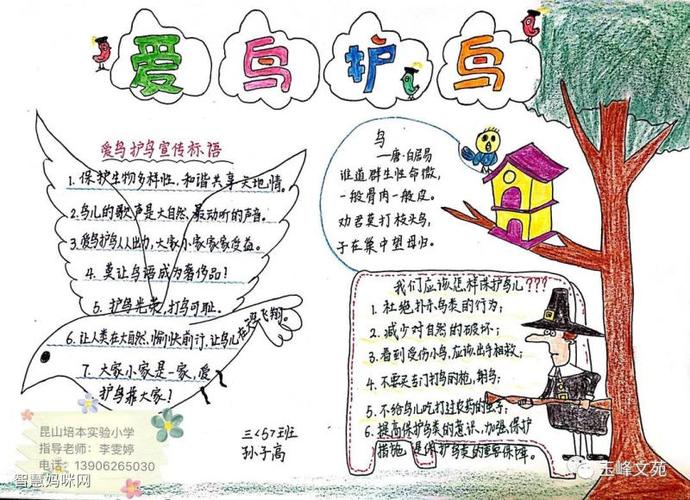 爱鸟护鸟
爱鸟护鸟宣传标语
1. 保护生物多样性，和谐共享天地情。
2. 鸟儿的歌声是大自然最动听的声音。
3. 爱鸟护鸟人人出力，大家小家家家受益。
4. 莫让鸟语成为奢侈品！
5. 护鸟光荣，打鸟可耻。
6. 让人类在大自然愉快前行，让鸟儿在飞翔！
7. 大家小家是一家，爱
护鸟靠大家！
鸟
——唐·白居易
谁道群生性命微，
一般骨肉一般皮。
劝君莫打枝头鸟，
子在巢中望母归。
我们应该怎样保护鸟儿？？？
1. 杜绝捕杀鸟类的行为；
2. 减少对自然的破坏；
3. 看到受伤小鸟，应该出手相救；
4. 不要买专门打鸟的枪，
5. 不给鸟儿吃打过农药的虫子；
6. 提高保护鸟类的意识，加强保护
措施是保护鸟类的重要保障。
三<5>班
孙子高
昆山培本实验小学
指导老师：李雯婷
电话：13906265030
智慧妈咪网
玉峰文苑